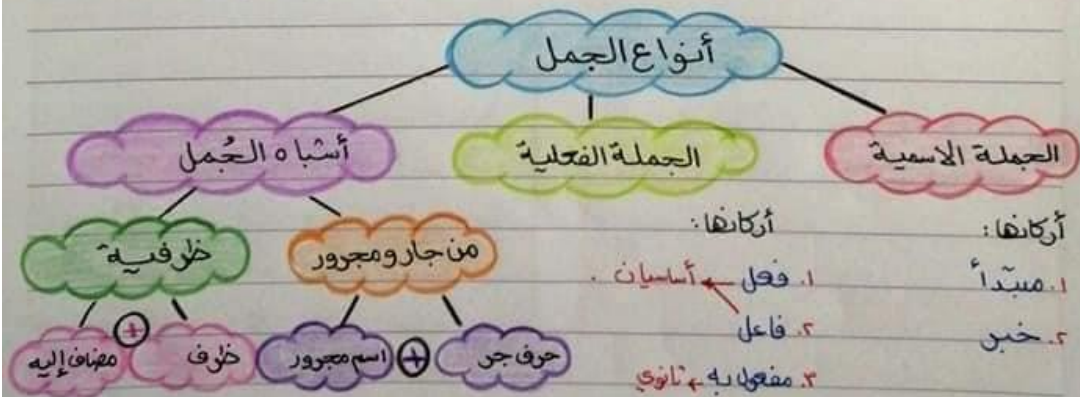 أنواع الجمل
الجملة الاسمية
الجملة الفعلية
أشباه الجُمل
أركانها:
١. مبتدأ
٢. خبر
أركانها:
١. فعل أساسيان.
٢. فاعل
٣. مفعول به ثانوي
من جار ومجرور
ظرفية
حرف جر + اسم مجرور
ظرف + مضاف إليه